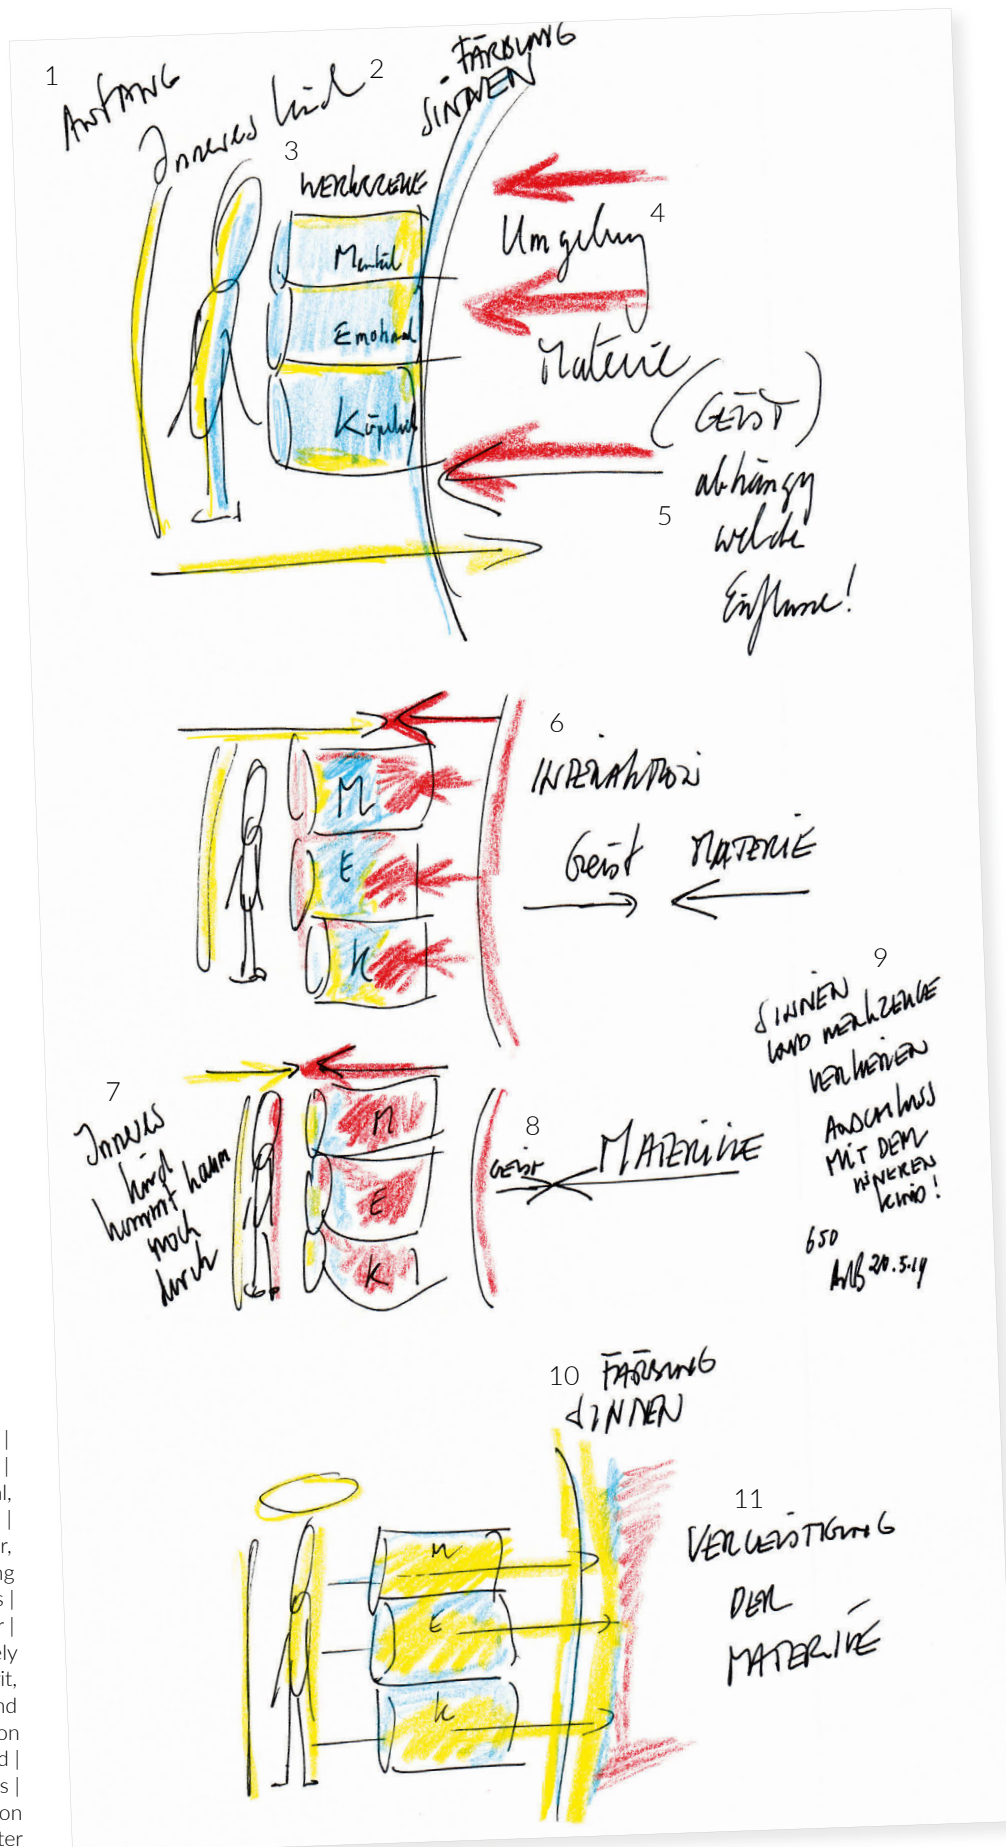 1
ANFANG
2
Inneres Kind
FÄRBUNG
SINNEN
3
WERKZEUGE
Mental
Emotional
Körperlich
4
Umgebung
Materie
(GEIST)
5
abhängig
welche
Einflüsse!
6
INTERAKTION
Geist MATERIE
M
E
K
7
Inneres
Kind
kommt kaum
noch
durch
M
E
K
8
GEIST
MATERIE
9
SINNEN
UND WERKZEUGE
VERLIEREN
ANSCHLUSS
MIT DEM
INNEREN
KIND!
650
20.5.19
10
FÄRBUNG
SINNEN
M
E
K
11
VERGEISTIGUNG
DER
MATERIE
|
|
al,
|
r,
ng
s |
r |
ely
it,
nd
on
d |
s |
on
ter